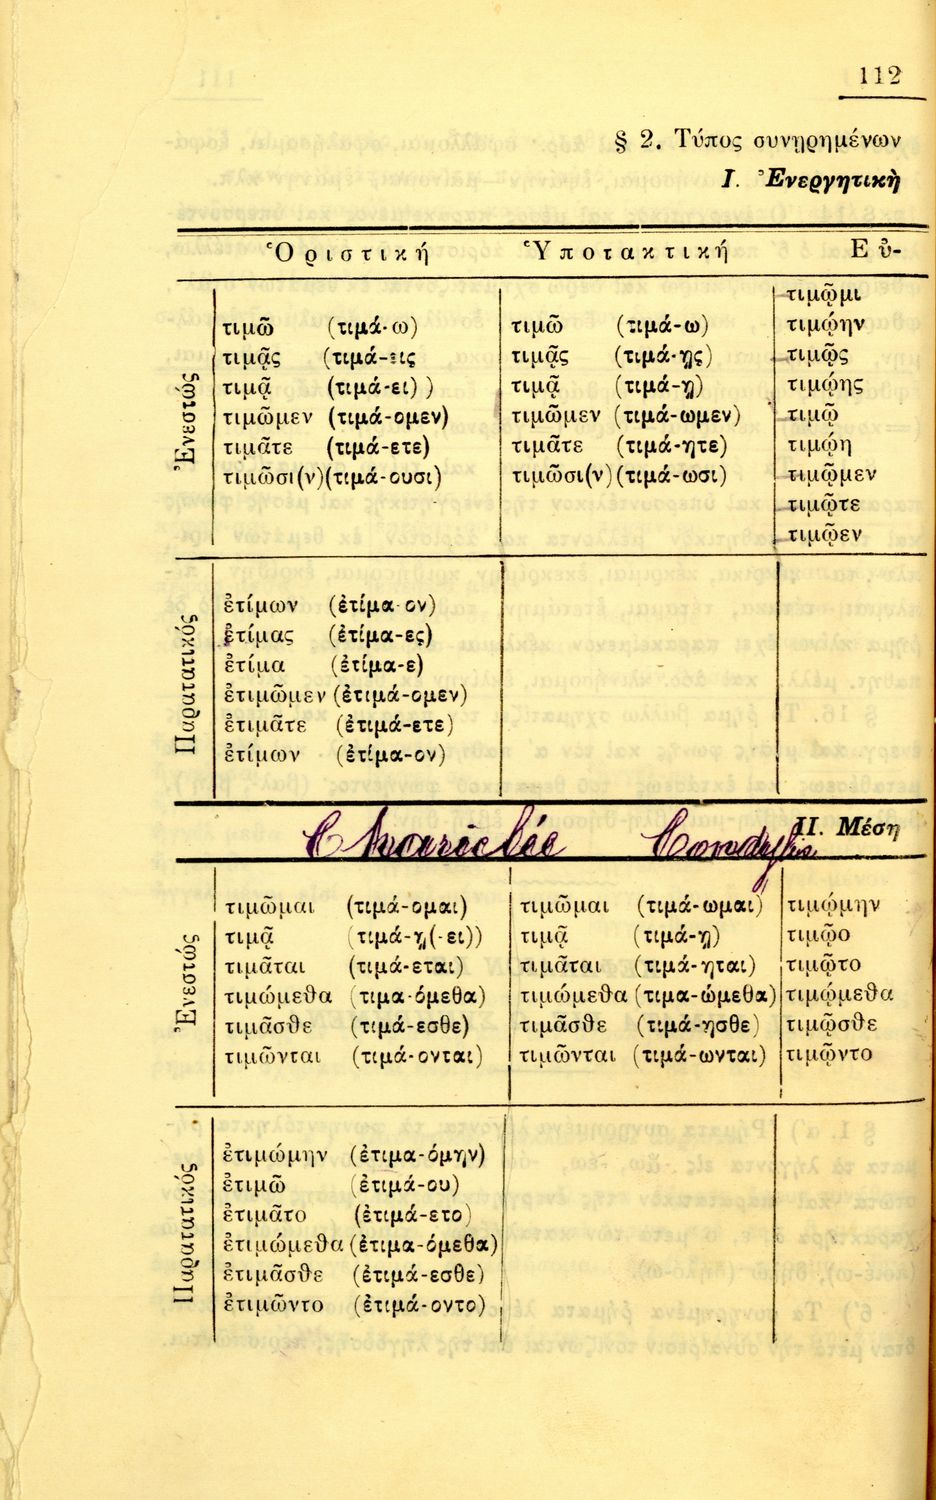 112
§ 2. Τύπος συνῃρημένων
I. Ἐνεργητικὴ
Ὁριστική Ὑποτακτική Εὐ-
τιμῷμι
τιμῶ (τιμά-ω) τιμῶ (τιμά-ω) τιμῴην
τιμᾷς (τιμά-εις τιμᾷς (τιμά-ῃς) τιμῷς
τιμᾷ (τιμά-ει) ) τιμᾷ (τιμά-ῃ) τιμῴης
Ἐνεστώς
τιμῶμεν (τιμά-ομεν) τιμῶμεν (τιμά-ωμεν) τιμῷ
τιμᾶτε (τιμά-ετε) τιμᾶτε (τιμά-ητε) τιμῴη
τιμῶσι(ν)(τιμά-ουσι) τιμῶσι(ν)(τιμά-ωσι) τιμῷμεν
τιμῷτε
τιμῷεν
ἐτίμων (ἐτίμα-ον)
ἐτίμας (ἐτίμα-ες)
ἐτίμα (ἐτίμα-ε)
Παρατατικός
ἐτιμῶμεν (ἐτιμά-ομεν)
ἐτιμᾶτε (ἐτιμά-ετε)
ἐτίμων (ἐτίμα-ον)
II. Μέση
Condylis
τιμῶμαι (τιμά-ομαι) τιμῶμαι (τιμά-ωμαι) τιμῴμην
τιμᾷ (τιμά-ῃ(-ει)) τιμᾷ (τιμά-ῃ) τιμῷο
τιμᾶται (τιμά-εται) τιμᾶται (τιμά-ηται) τιμῷτο
Ἐνεστώς
τιμώμεθα (τιμα-όμεθα) τιμώμεθα (τιμα-ώμεθα) τιμῴμεθα
τιμᾶσθε (τιμά-εσθε) τιμᾶσθε (τιμά-ησθε) τιμῷσθε
τιμῶνται (τιμά-ονται) τιμῶνται (τιμά-ωνται) τιμῷντο
ἐτιμώμην (ἐτιμα-όμην)
ἐτιμῶ (ἐτιμά-ου)
ἐτιμᾶτο (ἐτιμά-ετο)
Παρατατικός
ἐτιμώμεθα (ἐτιμα-όμεθα)
ἐτιμᾶσθε (ἐτιμά-εσθε)
ἐτιμῶντο (ἐτιμά-οντο)